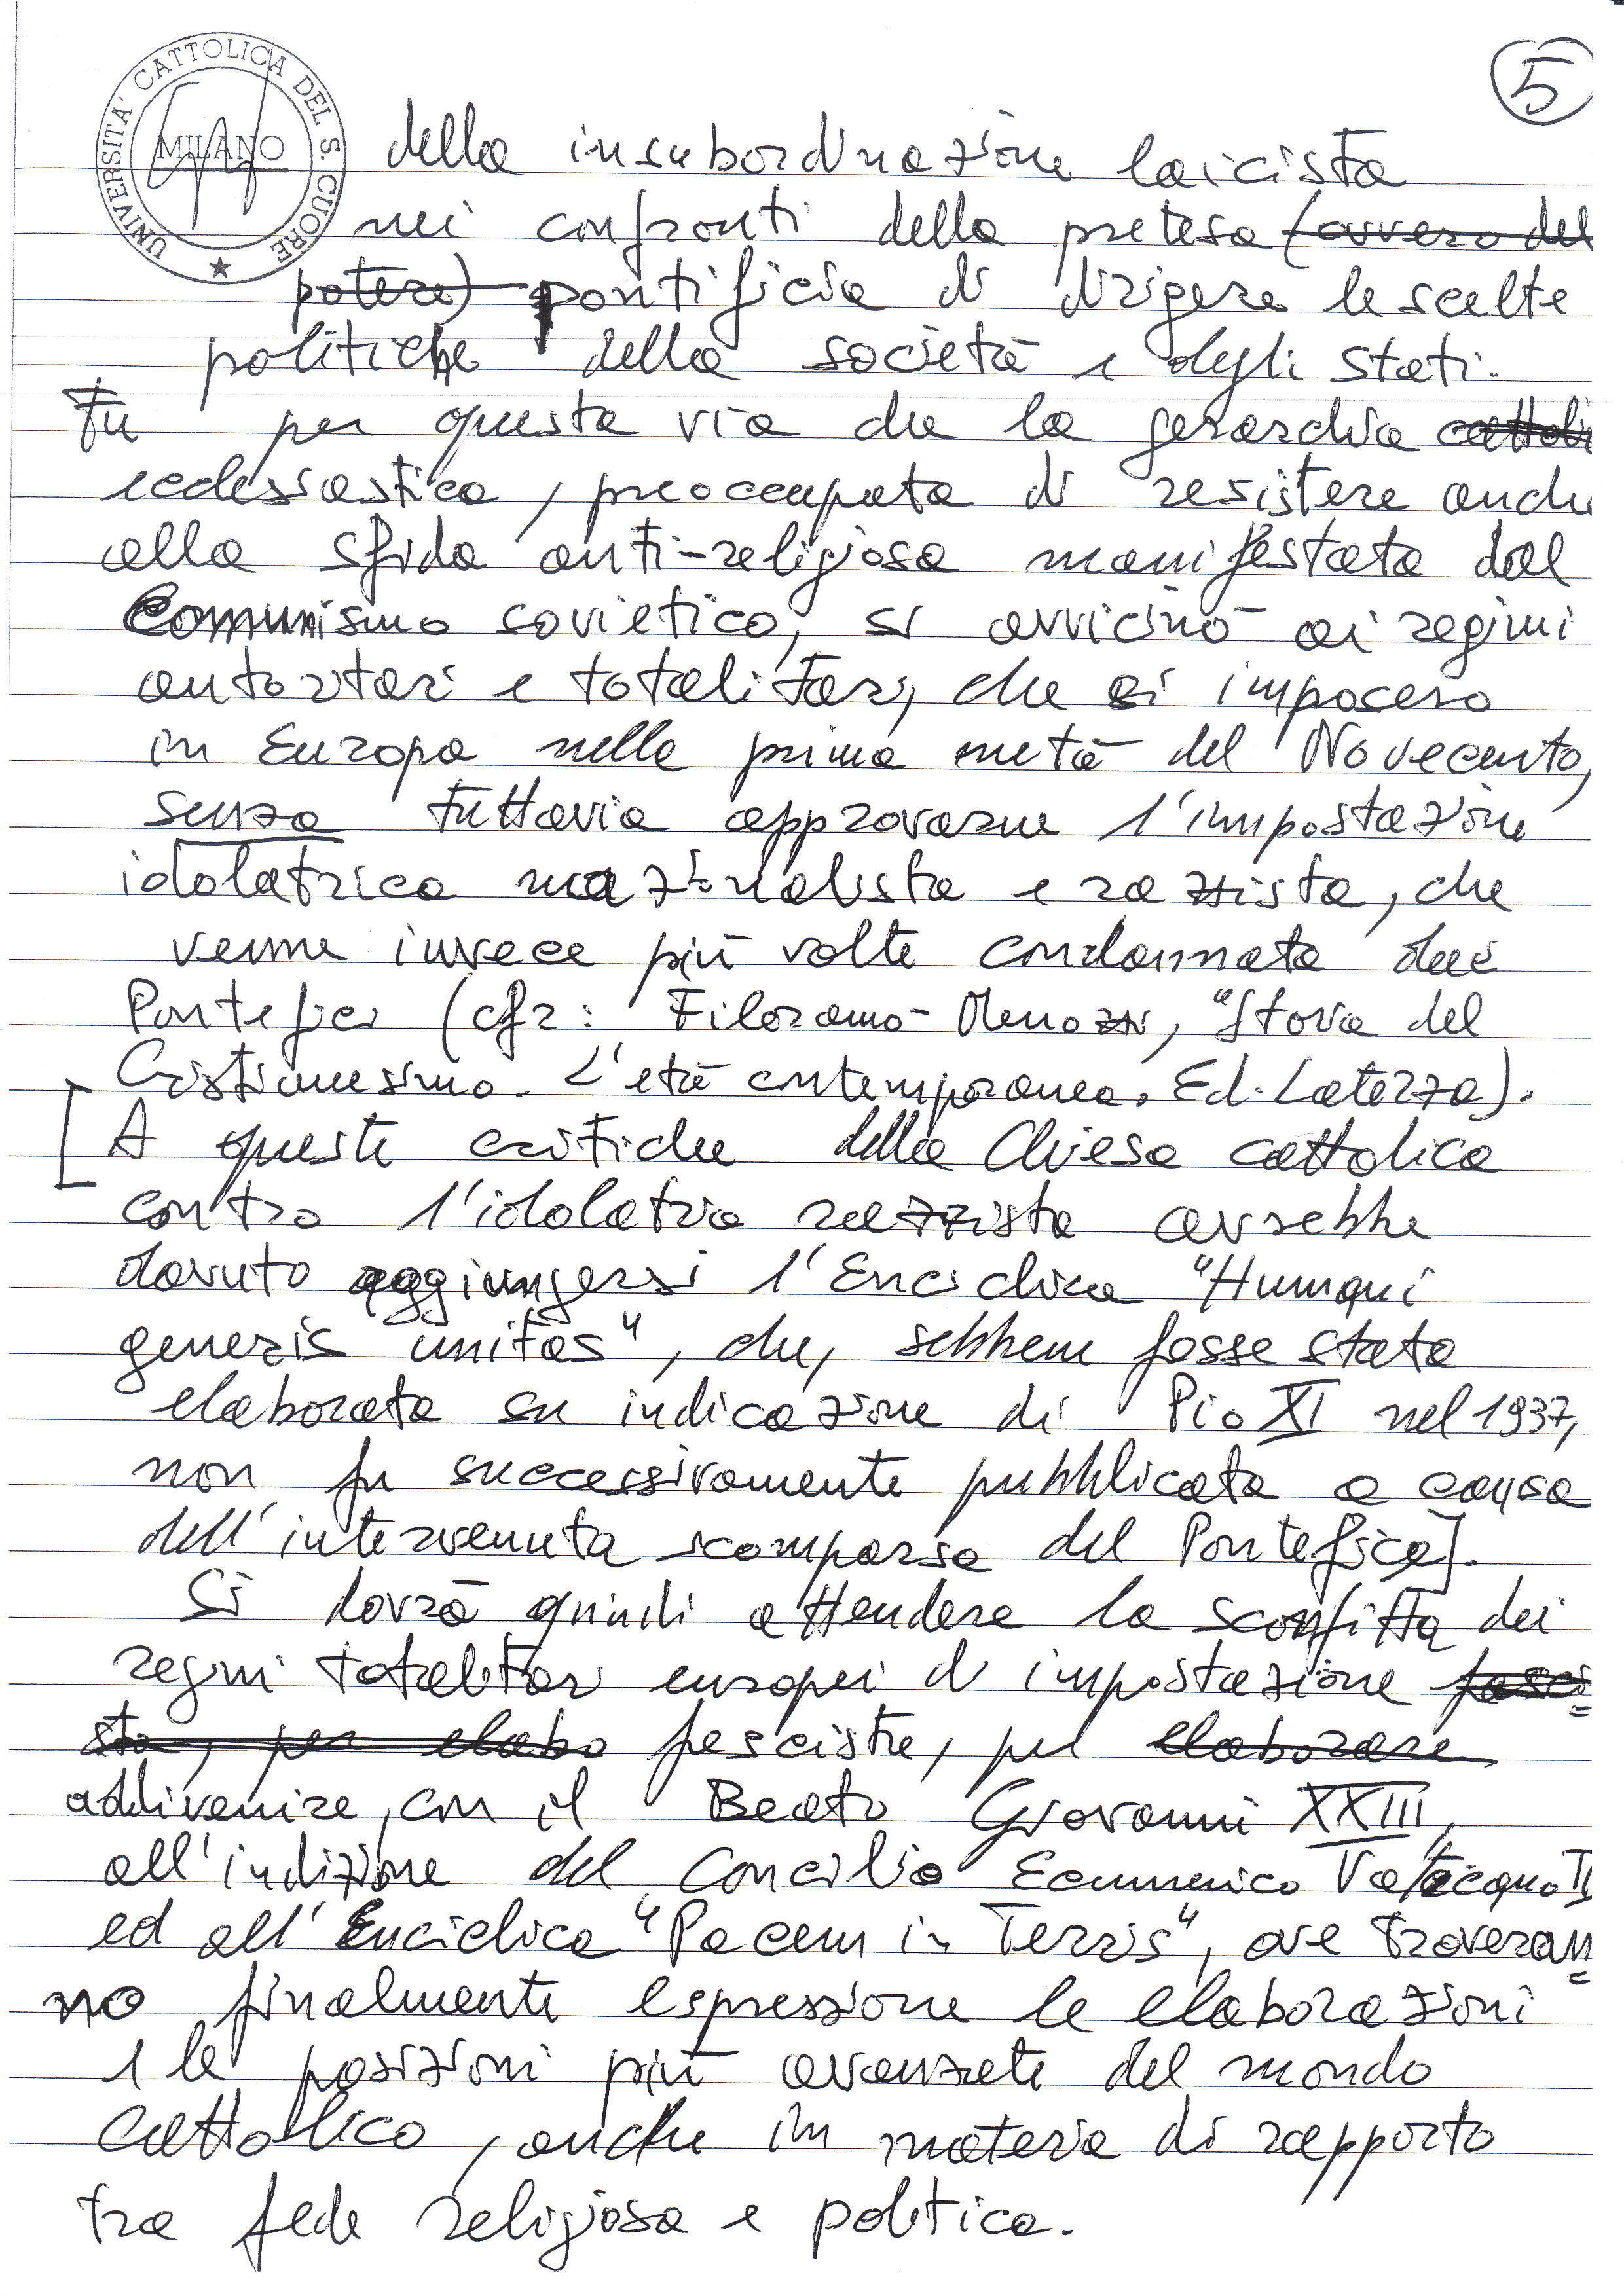 UNIVERSITA' CATTOLICA DEL S. CUORE
MILANO
5
della insubordinazione laicista
nei confronti della pretesa (ovvero del
potere) pontificia di dirigere le scelte
politiche della società e degli stati.
Fu per questa via che la gerarchia cattoli
ecclesiastica, preoccupata di resistere anche
alla sfida anti-religiosa manifestata dal
Comunismo sovietico, si avvicinò ai regimi
autoritari e totalitari, che si imposero
in Europa nella prima metà del Novecento,
senza tuttavia approvarne l'impostazione
idolatrica nazionalista e razzista, che
venne invece più volte condannata dai
Pontefici (cfr: Filoramo-Menozzi, "Storia del
Cristianesimo. L'età contemporanea. Ed. Laterza).
[A queste critiche della Chiesa cattolica
contro l'idolatria razzista avrebbe
dovuto aggiungersi l'Enciclica "Humani
generis unitas", che, sebbene fosse stata
elaborata su indicazione di Pio XI nel 1937,
non fu successivamente pubblicata a causa
dell'intervenuta scomparsa del Pontefice].
Si dovrà quindi attendere la sconfitta dei
regimi totalitari europei di impostazione fasci=
sta, per elabo fascista, per elaborare
addivenire, con il Beato Giovanni XXIII,
all'indizione del Concilio Ecumenico Vaticano II
ed all'Enciclica "Pacem in Terris", ove troveran=
no finalmente espressione le elaborazioni
e le posizioni più avanzate del mondo
cattolico, anche in materia di rapporto
tra fede religiosa e politica.